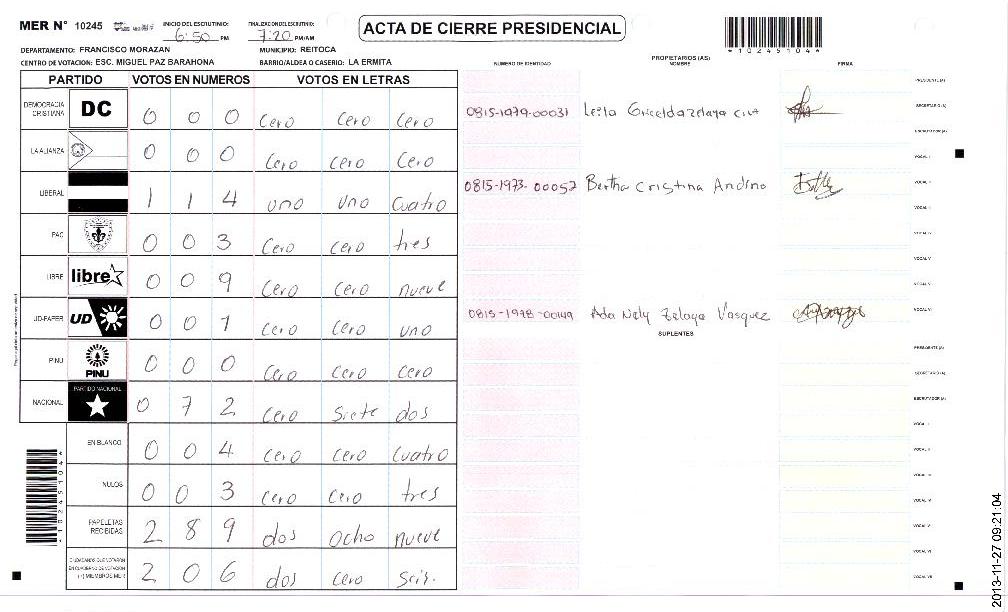 MER N° 10245
INICIO DEL ESCRUTINIO: 6:50 PM
FINALIZACION DEL ESCRUTINIO: 7:20 PM/AM
ACTA DE CIERRE PRESIDENCIAL
*10245104*
DEPARTAMENTO: FRANCISCO MORAZAN
MUNICIPIO: REITOCA
CENTRO DE VOTACION: ESC. MIGUEL PAZ BARAHONA
BARRIO/ALDEA O CASERIO: LA ERMITA
PARTIDO VOTOS EN NUMEROS VOTOS EN LETRAS
NUMERO DE IDENTIDAD PROPIETARIOS (AS) NOMBRE FIRMA
DEMOCRACIA CRISTIANA DC 0 0 0 Cero Cero Cero
LA ALIANZA 0 0 0 Cero Cero Cero
LIBERAL 1 1 4 uno uno Cuatro
PAC 0 0 3 Cero Cero tres
LIBRE libre 0 0 9 Cero Cero nueve
UD-FAPER UD 0 0 1 Cero Cero uno
PINU PINU 0 0 0 Cero Cero Cero
NACIONAL PARTIDO NACIONAL 0 7 2 Cero Siete dos
EN BLANCO 0 0 4 Cero Cero Cuatro
NULOS 0 0 3 Cero Cero tres
PAPELETAS RECIBIDAS 2 8 9 dos ocho nueve
CIUDADANOS QUE VOTARON EN CUADERNO DE VOTACION (+) MIEMBROS MER 2 0 6 dos Cero Seis.
0815-1979-00031
0815-1973-00057 Bertha Cristina Andino
0815-1978-00149 Ada Nely Zelaya Vasquez
SUPLENTES
PRESIDENTE (A)
SECRETARIO (A)
ESCRUTADOR (A)
VOCAL I
VOCAL II
VOCAL III
VOCAL IV
VOCAL V
VOCAL VI
PRESIDENTE (A)
SECRETARIO (A)
ESCRUTADOR (A)
VOCAL I
VOCAL II
VOCAL III
VOCAL IV
VOCAL V
VOCAL VI
VOCAL VII
*10245104*
2013-11-27 09:21:04